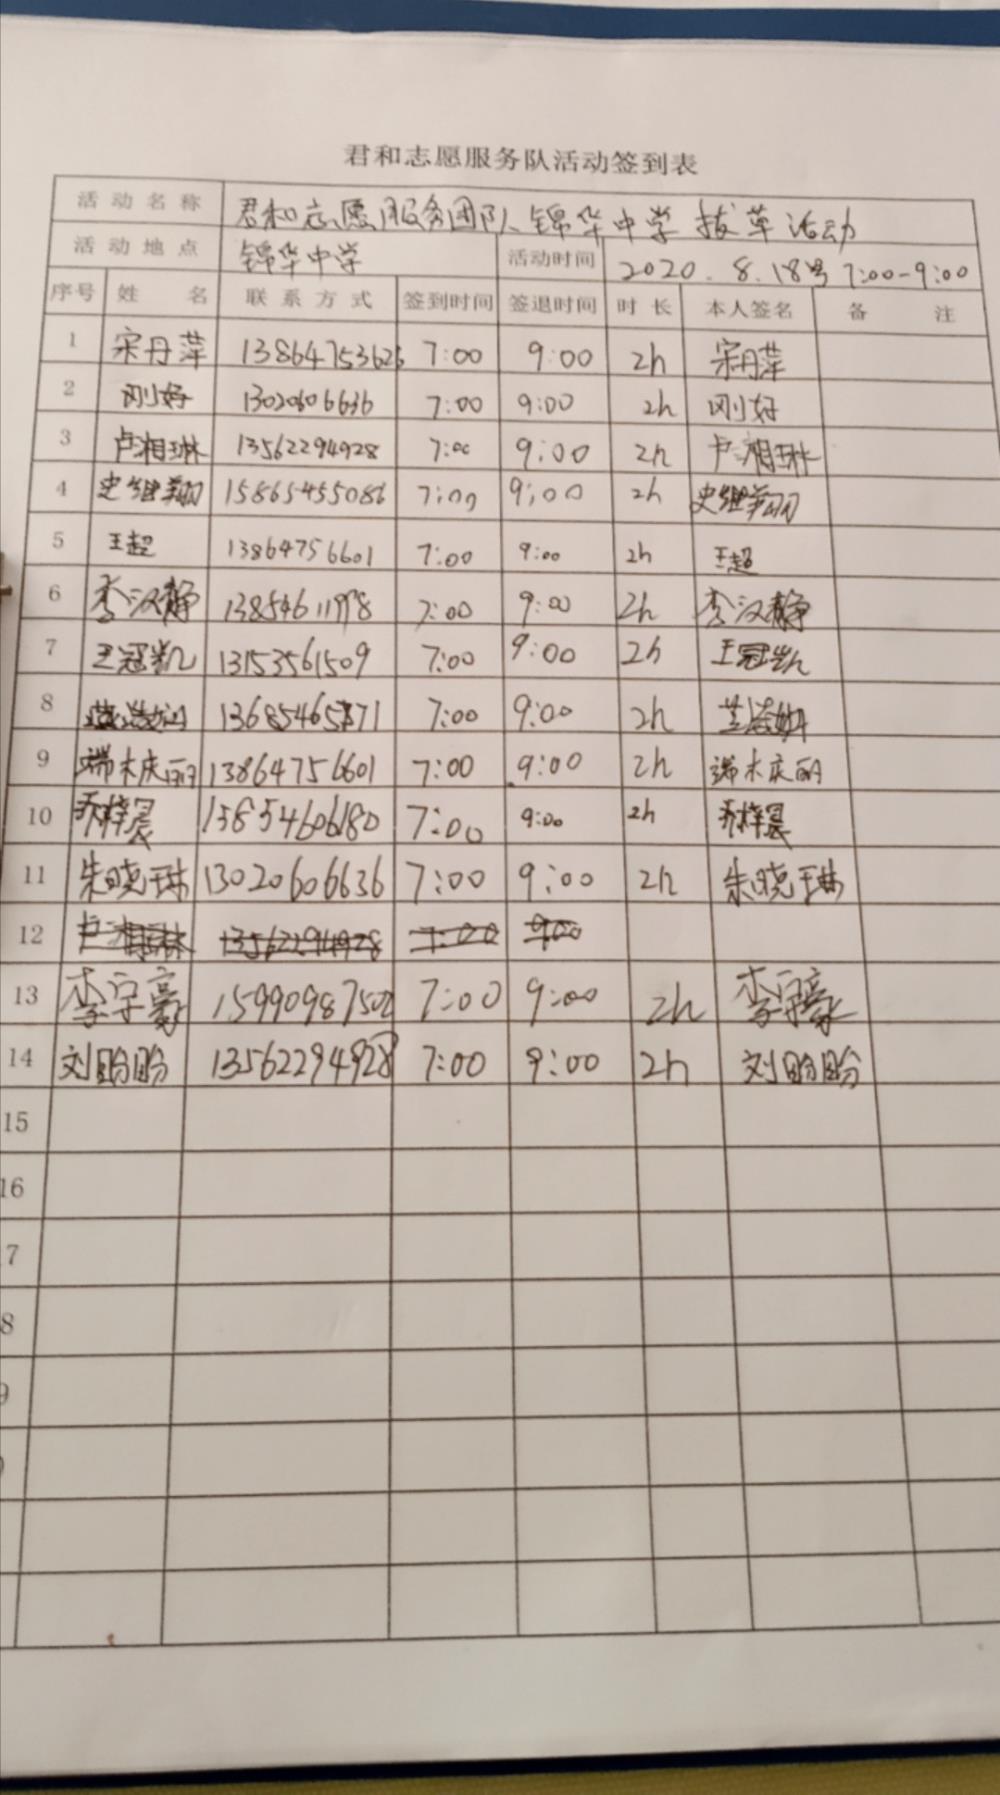 君和志愿服务队活动签到表
活动名称 君和志愿服务团队锦华中学拔草活动
活动地点 锦华中学 活动时间 2020.8.18号 7:00-9:00
序号 姓名 联系方式 签到时间 签退时间 时长 本人签名 备注
1 宋丹萍 13864753625 7:00 9:00 2h 宋丹萍
2 刚好 13020606636 7:00 9:00 2h 刚好
3 卢湘琳 13562294928 7:00 9:00 2h 卢湘琳
4 史继翔 15865455086 7:00 9:00 2h 史继翔
5 王超 13864756601 7:00 9:00 2h 王超
6 李汉静 7:00 9:00 2h 李汉静
7 王冠凯 13153561509 7:00 9:00 2h 王冠凯
8 7:00 9:00 2h
9 端木庆丽 13864756601 7:00 9:00 2h 端木庆丽
10 乔梓晨 15854606180 7:00 9:00 2h 乔梓晨
11 朱晓琳 13020606636 7:00 9:00 2h 朱晓琳
12 卢湘琳 13562294928 7:00 9:00
13 李宇豪 15990987502 7:00 9:00 2h 李宇豪
14 刘盼盼 13562294928 7:00 9:00 2h 刘盼盼
15
16
7
8
9